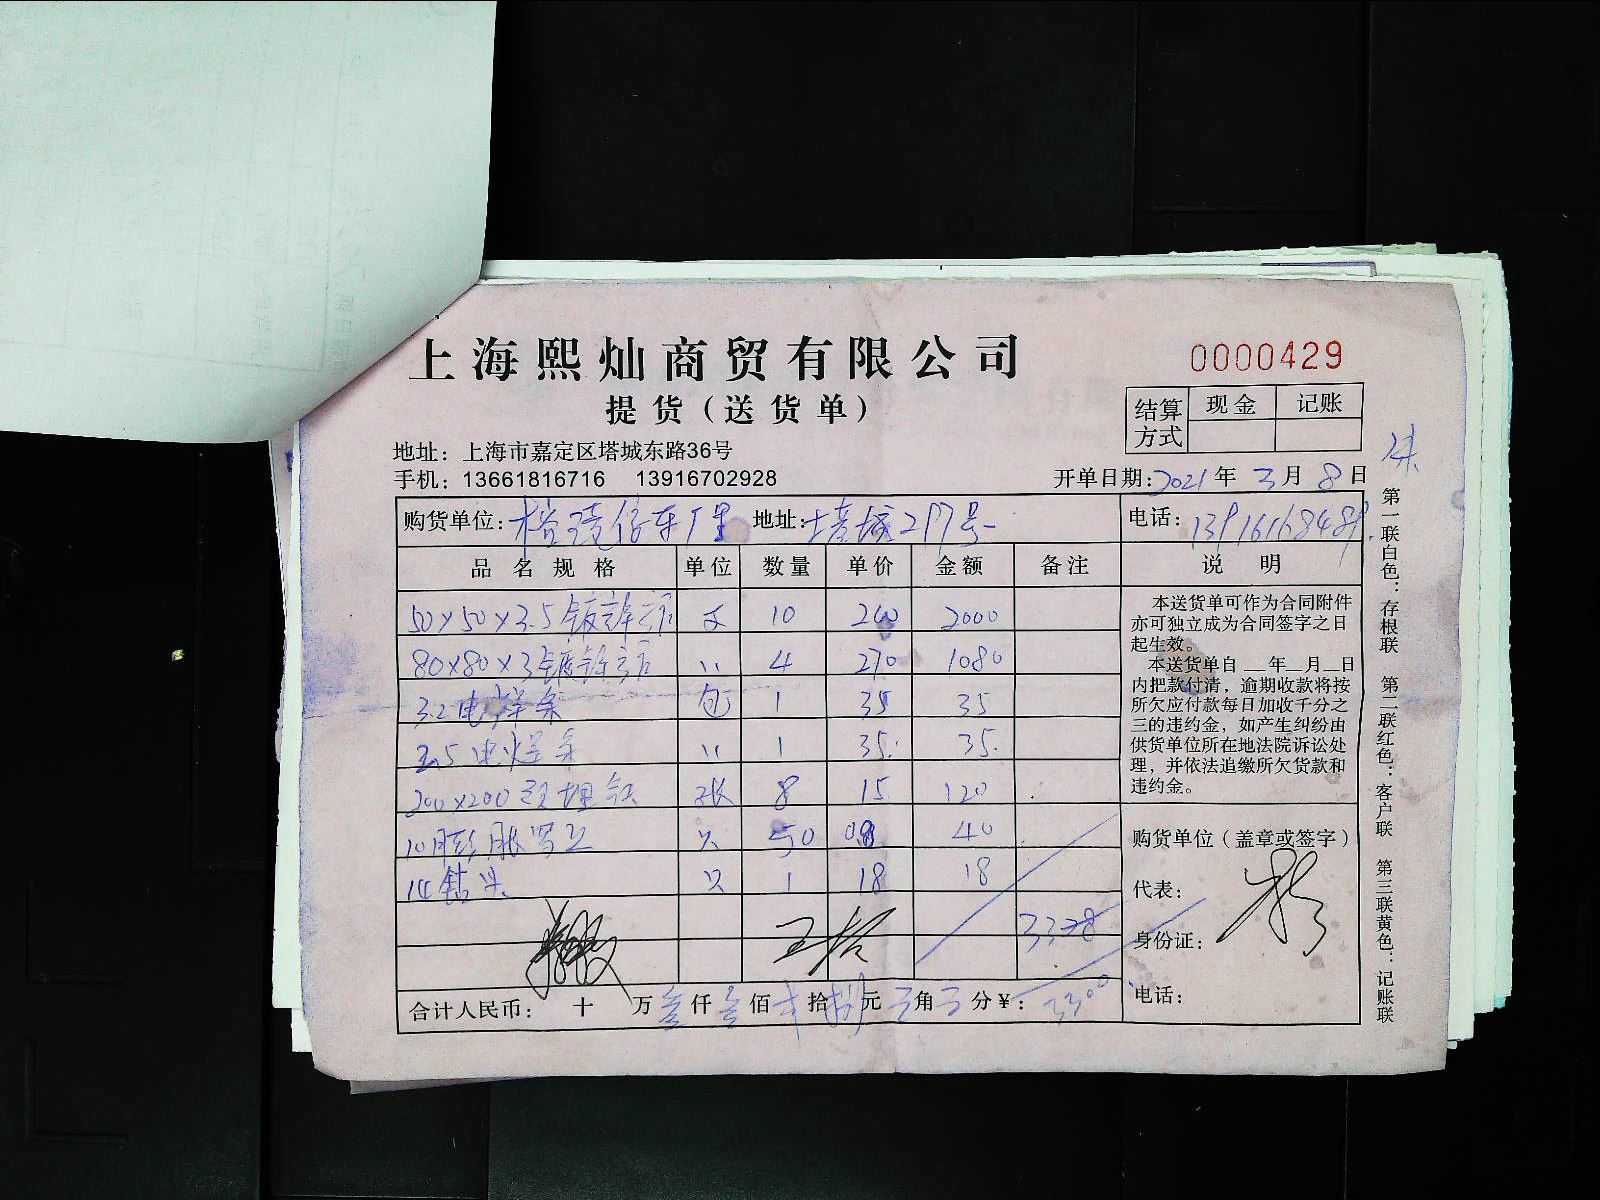 上海熙灿商贸有限公司
0000429
提货(送货单)
结算方式 现金 记账
地址: 上海市嘉定区塔城东路36号
手机: 13661816716 13916702928
开单日期: 2021年3月8日
购货单位: 停车 地址: 塔城217号 电话: 13916168489
品名规格 单位 数量 单价 金额 备注 说明
50×50×3.5镀锌方 支 10 200 2000
80×80×3镀锌方 〃 4 270 1080
3.2电焊条 包 1 35 35
2.5电焊条 〃 1 35 35
200×200预埋铁 张 8 15 120
10膨胀罗丝 只 50 0.8 40
14钻头 只 1 18 18
3328
合计人民币: 十 万叁仟叁佰 拾 元 角 分¥: 3300
本送货单可作为合同附件
亦可独立成为合同签字之日
起生效。
本送货单自__年__月__日
内把款付清,逾期收款将按
所欠应付款每日加收千分之
三的违约金,如产生纠纷由
供货单位所在地法院诉讼处
理,并依法追缴所欠货款和
违约金。
购货单位(盖章或签字)
代表:
身份证:
电话:
第一联白色:存根联 第二联红色:客户联 第三联黄色:记账联